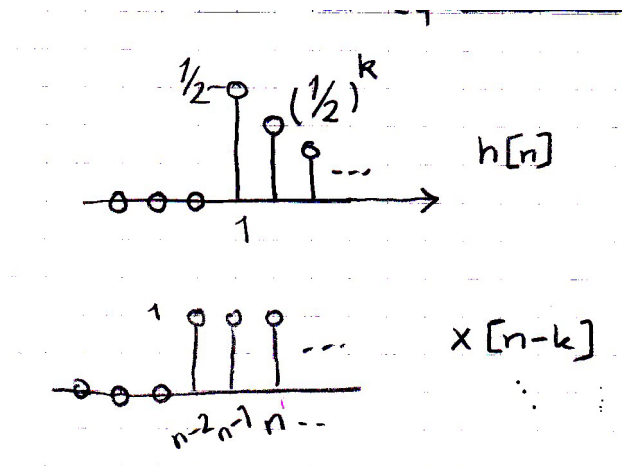 1/2 (1/2)^k
h[n]
---
1
1
x[n-k]
---
n-2 n-1 n --